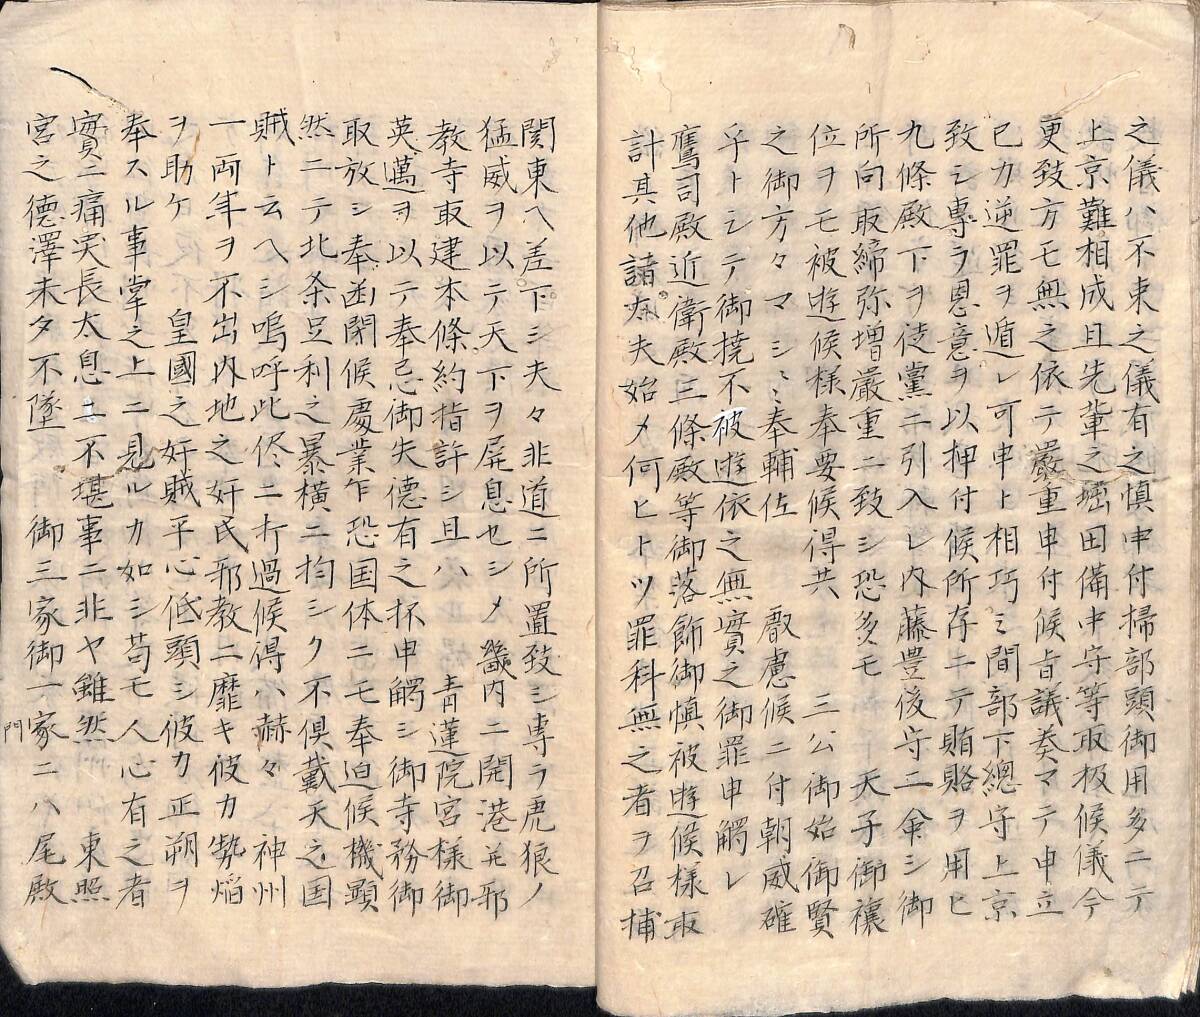 之儀ハ不束之儀有之慎申付掃部頭御用多ニテ
上京難相成且先輩之堀田備中守等取扱候儀今
更致方モ無之依テ嚴重申付候旨議奏マテ申立
已カ逆罪ヲ遁レ可申ト相巧ミ間部下總守上京
致シ專ラ恩意ヲ以押付候所存ニテ賄賂ヲ用ヒ
九條殿下ヲ徒黨ニ引入レ内藤豊後守ニ命シ御
所向取締弥増嚴重ニ致シ恐多モ 天子御禳
位ヲモ被遊候様奉要候得共 三公御始御賢
之御方々マシミミ奉輔佐 叡慮候ニ付朝威確
乎トシテ御撓不被遊依之無實之御罪申觸レ
鷹司殿近衛殿三條殿等御落飾御慎被遊候様取
計其他諸大夫始メ何ヒトツ罪科無之者ヲ召捕
関東ヘ差下シ夫々非道ニ所置致シ専ラ虎狼ノ
猛威ヲ以テ天下ヲ屏息セシメ畿内ニ開港并邪
教寺取建本條約指許シ且ハ 青蓮院宮様御
英邁ヲ以テ奉忌御失徳有之抔申觸シ御寺務御
取放シ奉幽閉候慶業乍恐国体ニモ奉迫候機顕
然ニテ北条足利之暴横ニ均シク不倶戴天之国
賊ト云ヘシ嗚呼此侭ニ打過候得ハ赫々 神州
一両年ヲ不出内地之奸民邪教ニ靡キ彼カ勢焔
ヲ助ケ 皇國之奸賊平心低頭シ彼カ正朔ヲ
奉スル事掌之上ニ見ルカ如シ苟モ人心有之者
實ニ痛哭長太息ニ不堪事ニ非ヤ雖然 東照
宮之德澤未タ不墜 御三家御一家ニハ尾殿
門